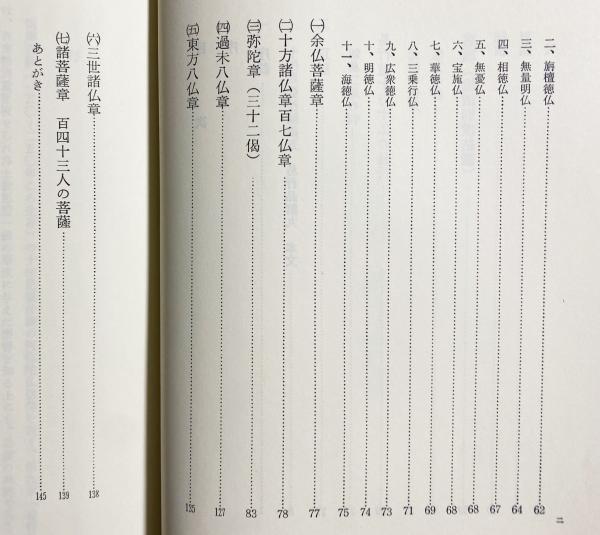 二、栴檀徳仏……62
三、無量明仏……64
四、相徳仏……67
五、無憂仏……68
六、宝施仏……68
七、華徳仏……69
八、三乗行仏……71
九、広衆徳仏……73
十、明徳仏……74
十一、海徳仏……75
㈠余仏菩薩章……77
㈡十方諸仏章百七仏章……78
㈢弥陀章（三十二偈）……83
㈣過未八仏章……127
㈤東方八仏章……135
二
㈥三世諸仏章……138
㈦諸菩薩章　百四十三人の菩薩……139
あとがき……145